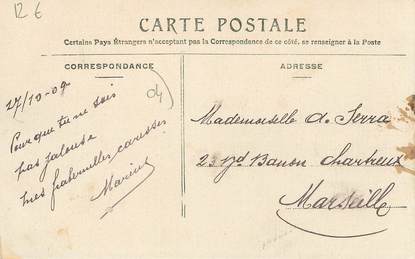 12 €
CARTE POSTALE
Certains Pays Étrangers n'acceptant pas la Correspondance de ce côté, se renseigner à la Poste
CORRESPONDANCE
27/10-09
04
Pour que tu ne sois
pas jalouse
mes fraternelles caresses
Marius
ADRESSE
Mademoiselle A. Serra
23 Bd Banon Chartreux
Marseille